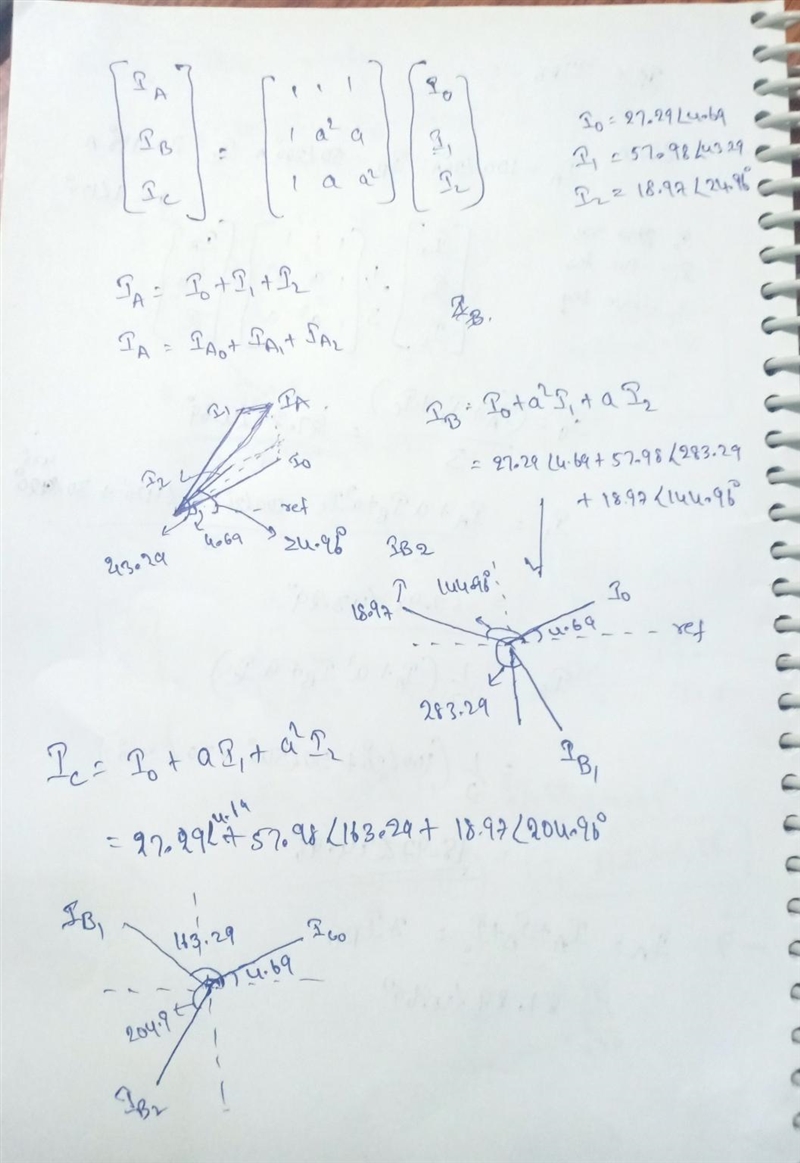 [I_A] = [1 1 1] [I_0]
[I_B] = [1 a² a] [I_1]
[I_C] = [1 a a²] [I_2]
I_0 = 27.29∠4.69
I_1 = 57.98∠43.29
I_2 = 18.97∠24.96°
I_A = I_0 + I_1 + I_2
I_A = I_A0 + I_A1 + I_A2
I_B.
I_1 I_A
I_2 I_0
ref
43.29 4.69 24.96°
I_B = I_0 + a²I_1 + a I_2
= 27.29∠4.69 + 57.98∠283.29
+ 18.97∠144.96°
I_B2
18.97 144.96° I_0
4.69 ref
283.29
I_B1
I_C = I_0 + aI_1 + a²I_2
= 27.29∠4.19 + 57.98∠163.29 + 18.97∠204.96°
I_B1 163.29 I_C0
4.69
204.9
I_B2